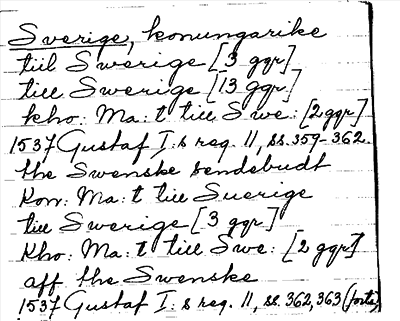 Sverige, konungarike
tiil Swerige [3 ggr]
till Swerige [13 ggr]
kho: Ma:t till Swe: [2 ggr]
1537 Gustaf I:s reg. 11, ss. 359-362.
the Swenske sendebudt
Kon: Ma:t till Suerige
till Swerige [3 ggr]
Kho: Ma:t till Swe: [2 ggr]
aff the Swenske
1537 Gustaf I:s reg. 11, ss. 362, 363 (forts)